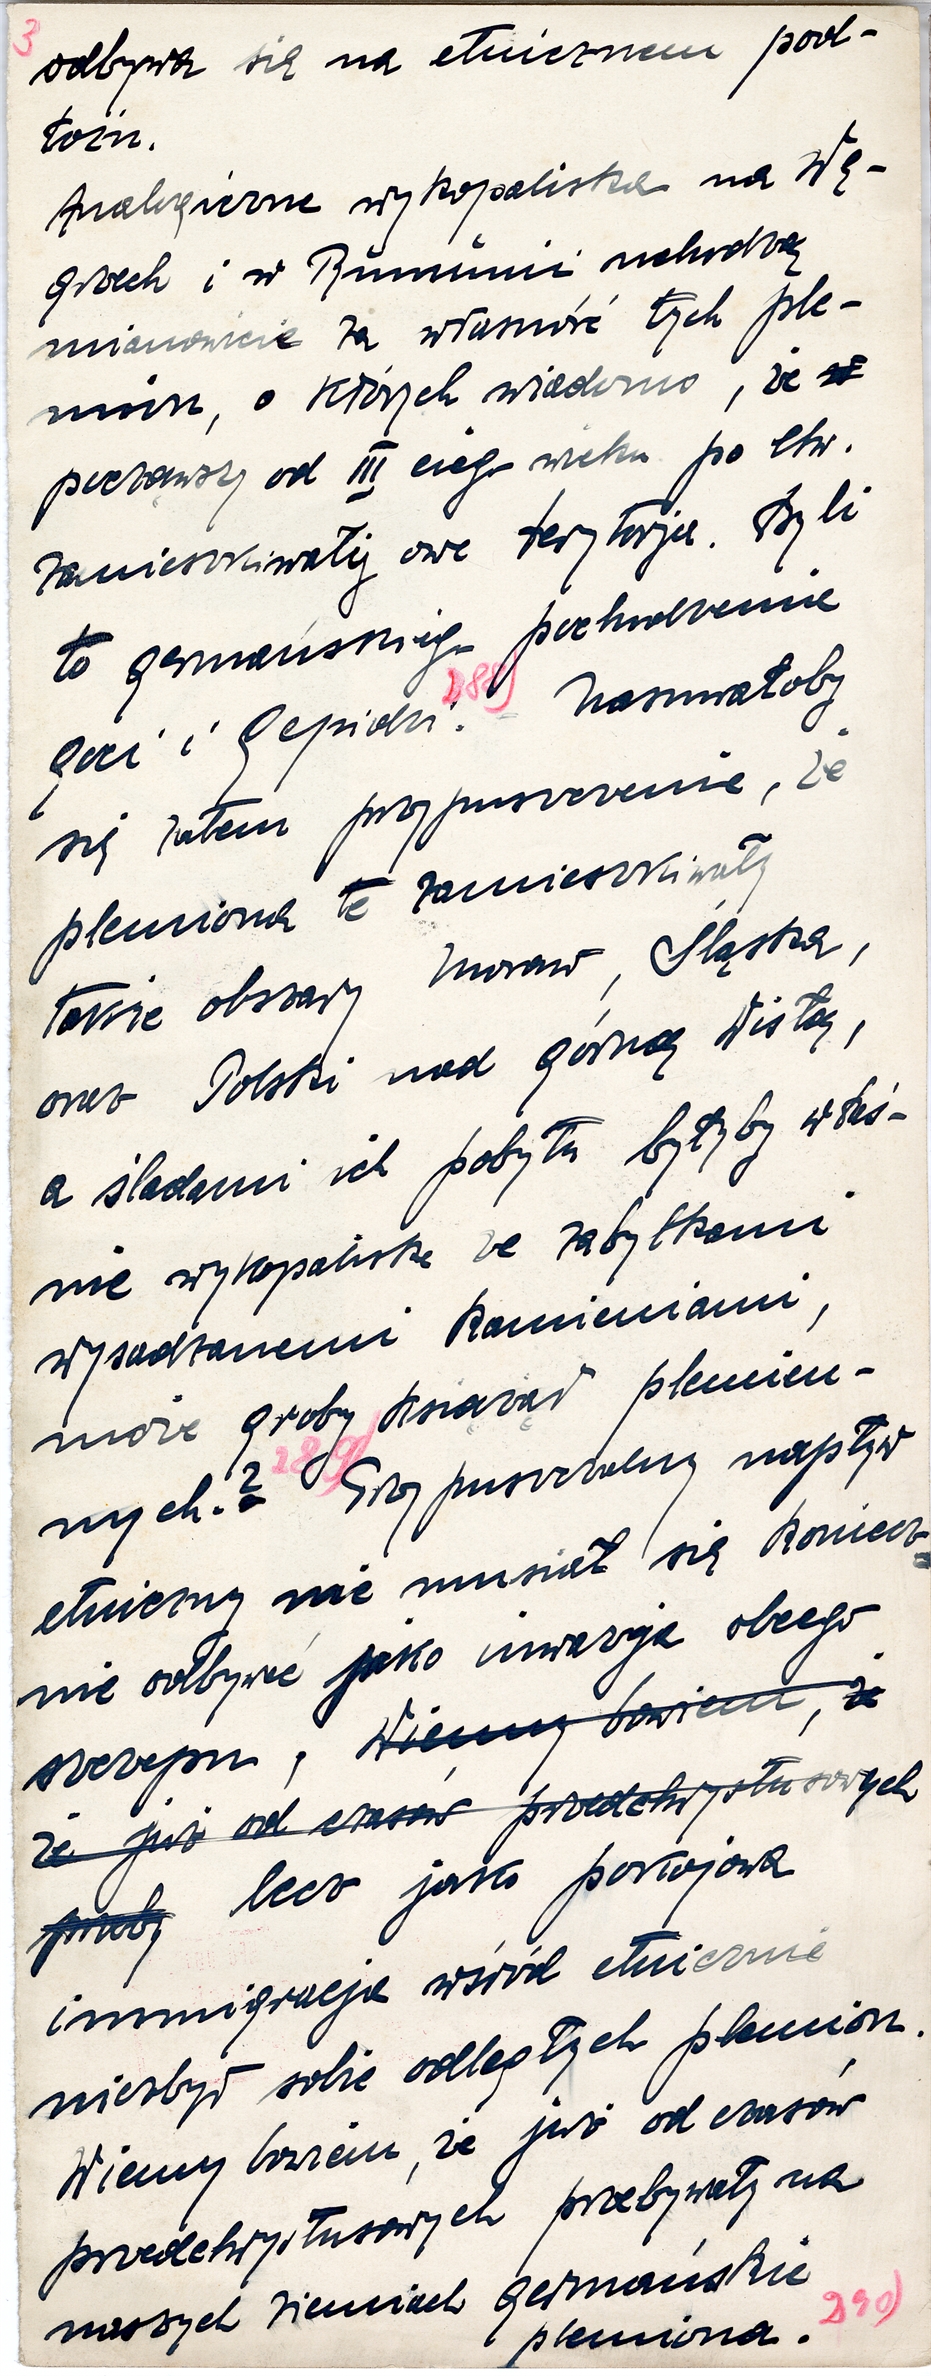 3
odbywa się na etnicznem pod-
łożu.
Analogiczne wykopaliska na Wę-
grzech i w Rumunii uchodzą
mianowicie za własność tych ple-
mion, o których wiadomo, że
począwszy od III ciego wieku po Chr.
zamieszkiwały owe terytorja. Byli
to germańskiego pochodzenia
goci i gepidzi. 288) Nasuwałoby
się zatem przypuszczenie, że
plemiona te zamieszkiwały
także obszary Moraw, Śląska,
oraz Polski nad górną Wisłą,
a śladami ich pobytu byłyby właś-
nie wykopaliska ze zabytkami
wysadzanemi kamieniami,
może groby książąt plemien-
nych.? 289) Przypuszczalny napływ
etniczny nie musiał się koniecz-
nie odbywać jako inwazja obcego
szczepu, Wiemy bowiem, że
że już od czasów przedchrystusowych
lecz jako pokojowa
immigracja wśród etnicznie
niezbyt sobie odległych plemion.
Wiemy bowiem, że już od czasów
przedchrystusowych przebywały na
naszych ziemiach germańskie
plemiona. 290)